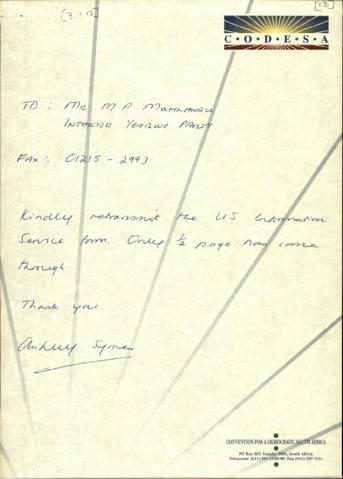 [3.13]
[13]
C·O·D·E·S·A
TO: MR M P MAHLANGU
INTANDO YESIZWE PARTY
FAX: 01215-2993
Kindly retransmit the US Information
Service form. Only ½ page has come
through.
Thank you.
Ashley Symes
CONVENTION FOR A DEMOCRATIC SOUTH AFRICA
PO Box 307, Isando, 1600, South Africa.
Telephone (011) Fax (011)